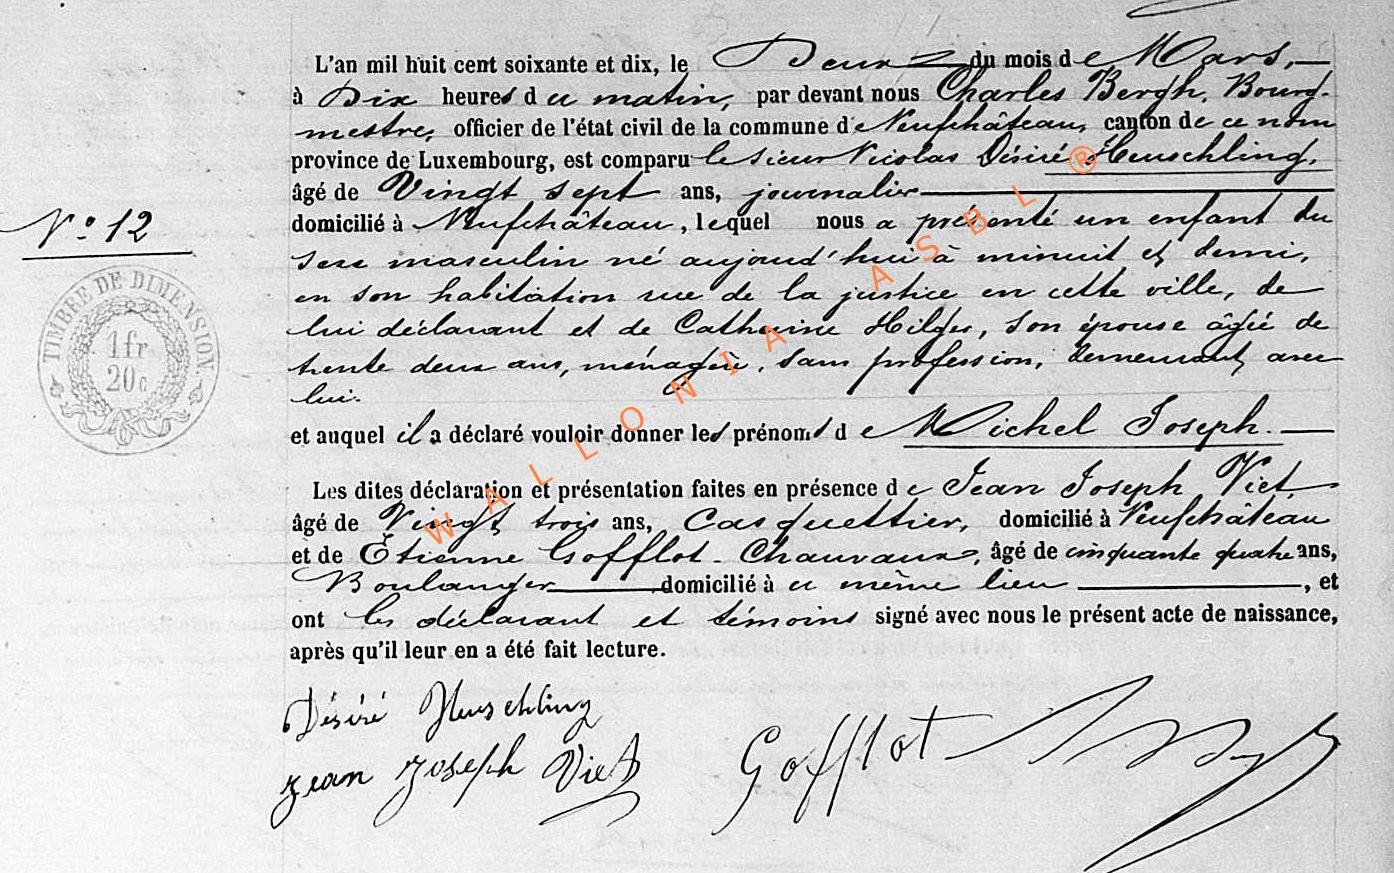 L'an mil huit cent soixante et dix, le Deux du mois de Mars,
à Dix heures du matin, par devant nous Charles Bergh, Bourg-
mestre, officier de l'état civil de la commune de Neufchâteau, canton de ce nom
province de Luxembourg, est comparu le sieur Nicolas Désiré Heuschling,
âgé de Vingt sept ans, journalier
domicilié à Neufchâteau, lequel nous a présenté un enfant du
N.° 12
sexe masculin né aujourd'hui à minuit et demi,
en son habitation rue de la justice en cette ville, de
lui déclarant et de Catherine Hilger, son épouse âgée de
trente deux ans, ménagère, sans profession, demeurant avec
lui.
TIMBRE DE DIMENSION
1fr
20c
et auquel il a déclaré vouloir donner les prénoms de Michel Joseph.
Les dites déclaration et présentation faites en présence de Jean Joseph Viet,
âgé de Vingt trois ans, Casquettier, domicilié à Neufchâteau
et de Etienne Gofflot-Chauvaux, âgé de cinquante quatre ans,
Boulanger domicilié à u même lieu, et
ont les déclarant et témoins signé avec nous le présent acte de naissance,
après qu'il leur en a été fait lecture.
Désiré Heuschling
Jean Joseph Viet
Gofflot
WALLONIA ASBL ®